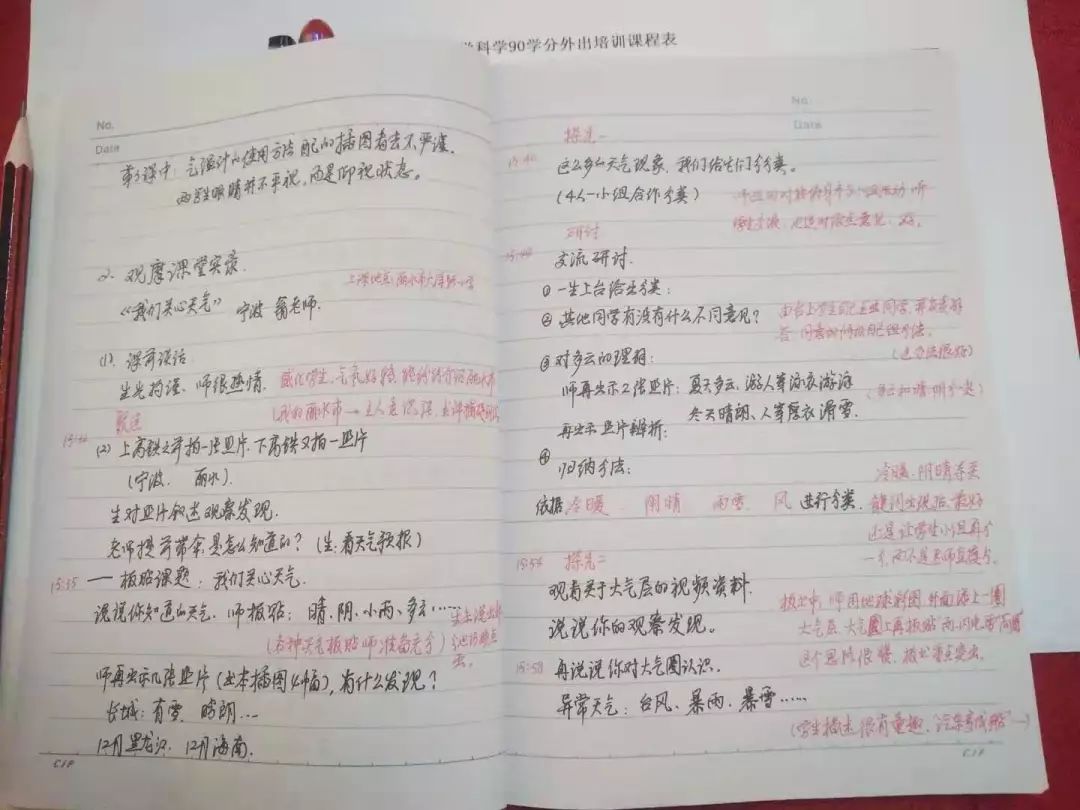 学科学90学分外出培训课程表
No.
Date
第3课中:气温计的使用方法配的插图看去不严谨,
两学生眼睛并不平视,而是仰视状态。
2. 观摩课堂实录.
上课地点:丽水市
《我们关心天气》 宁波 翁老师.
(1). 课前谈话.
生先拘谨、师很热情. 感化学生,气氛好
(我的丽水市→主人意识强,
聚焦
(2) 上高铁之前拍一张照片.下高铁又拍一照片
(宁波. 丽水).
生对照片叙述观察发现.
老师提前带伞,是怎么知道的?(生:看天气预报)
15:35 — 板贴课题:我们关心天气.
说说你知道的天气. 师板贴:晴、阴、小雨、多云……
生先说出
(各种天气板贴师准备充分)
师再出示几张照片(书本插图4幅),有什么发现?
长城:有雪、晴朗…
12月黑龙江、12月海南.
C1P
No.
Date
探究一
15:40 这么多的天气现象,我们给它们分分类。
(4人一小组合作分类)
研讨
15:49 交流研讨.
① 一生上台给它分类:
② 其他同学有没有什么不同意见?
(这办法很好)
③ 对多云的理解:
师再出示2张照片:夏天多云,游人穿泳衣游泳
冬天晴朗、人穿厚衣滑雪.
(多云和晴 分类)
再出示照片辨析:
④ 归纳方法:
依据 冷暖 阴晴 雨雪 风 进行分类.
冷暖、阴晴等关
键词出现后,最好
还是让学生小组再分
一分,而不是老师直接分.
15:54 探究二
观看关于大气层的视频资料.
说说你的观察发现。
板书中,师用地球彩图,外面添上一圈
大气层,大气圈上再板贴雨、闪电、雪
这个思路很棒,板书重点突出.
15:58 再说说你对大气圈认识.
异常天气:台风、暴雨、暴雪……
(学生描述很有童趣,汽车变成船…)
C1P